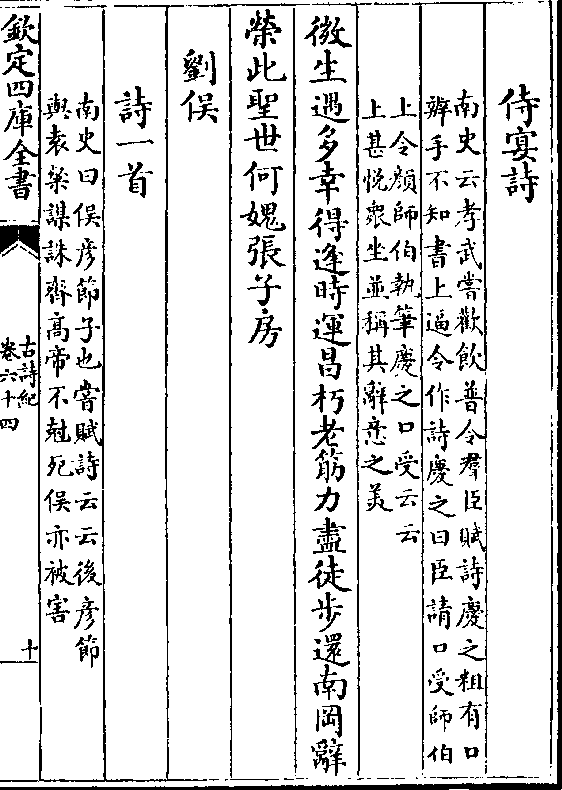 侍宴詩
南史云孝武嘗歡飲普令羣臣賦詩慶之粗有口
辨手不知書上逼令作詩慶之曰臣請口受師伯
上令顔師伯執筆慶之口受云云
上甚悦衆坐並稱其辭意之美
微生遇多幸得逢時運昌朽老筋力盡徒步還南岡辭
榮此聖世何媿張子房
劉俣
詩一首
南史曰俣彦節子也嘗賦詩云云後彦節
與袁粲謀誅齊高帝不尅死俣亦被害
欽定四庫全書
古詩紀
卷六十四
十